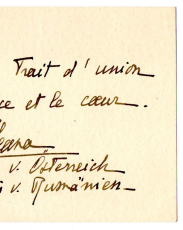 Trait d'union
ce et le cœur.
Ileana
v. Österreich
v. Rumänien